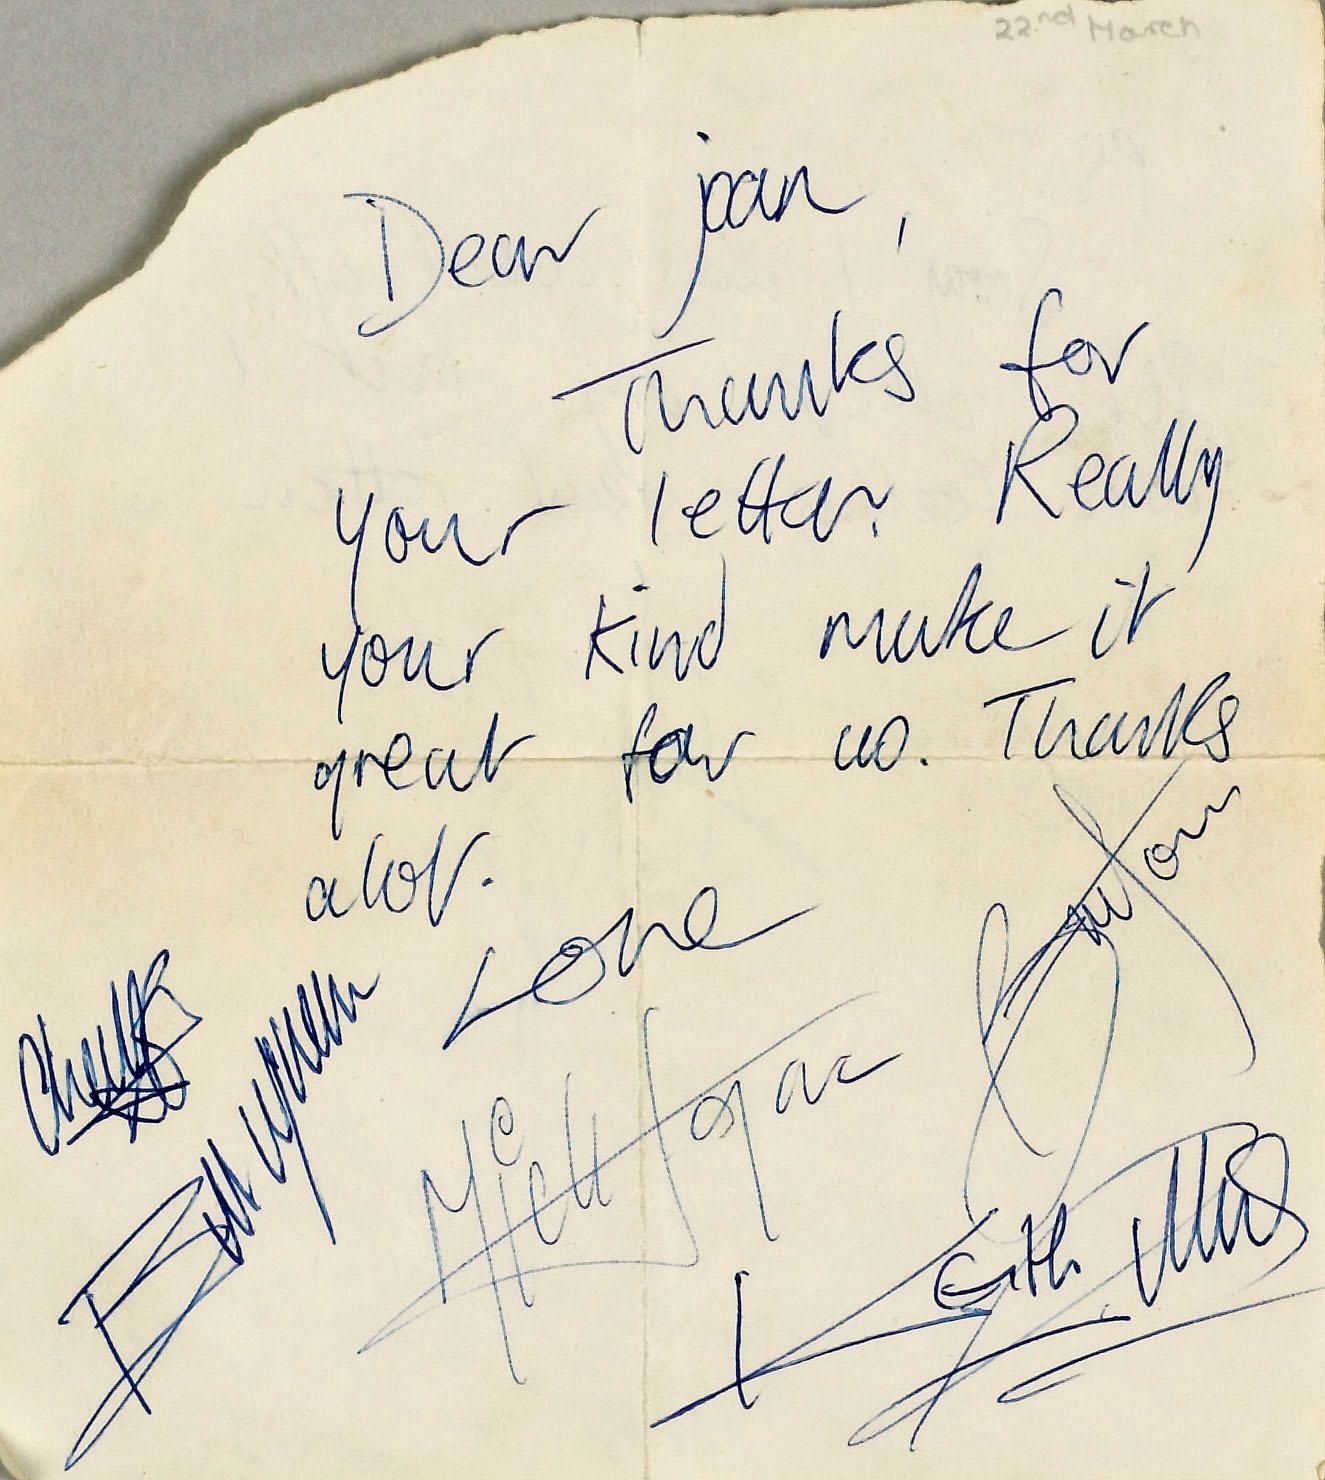 22nd March
Dear joan,
Thanks for
your letter. Really
your kind make it
great for us. Thanks
alot.
Love
Charlie
Bill Wyman
Mick Jagger
Brian Jones
Keith Richards